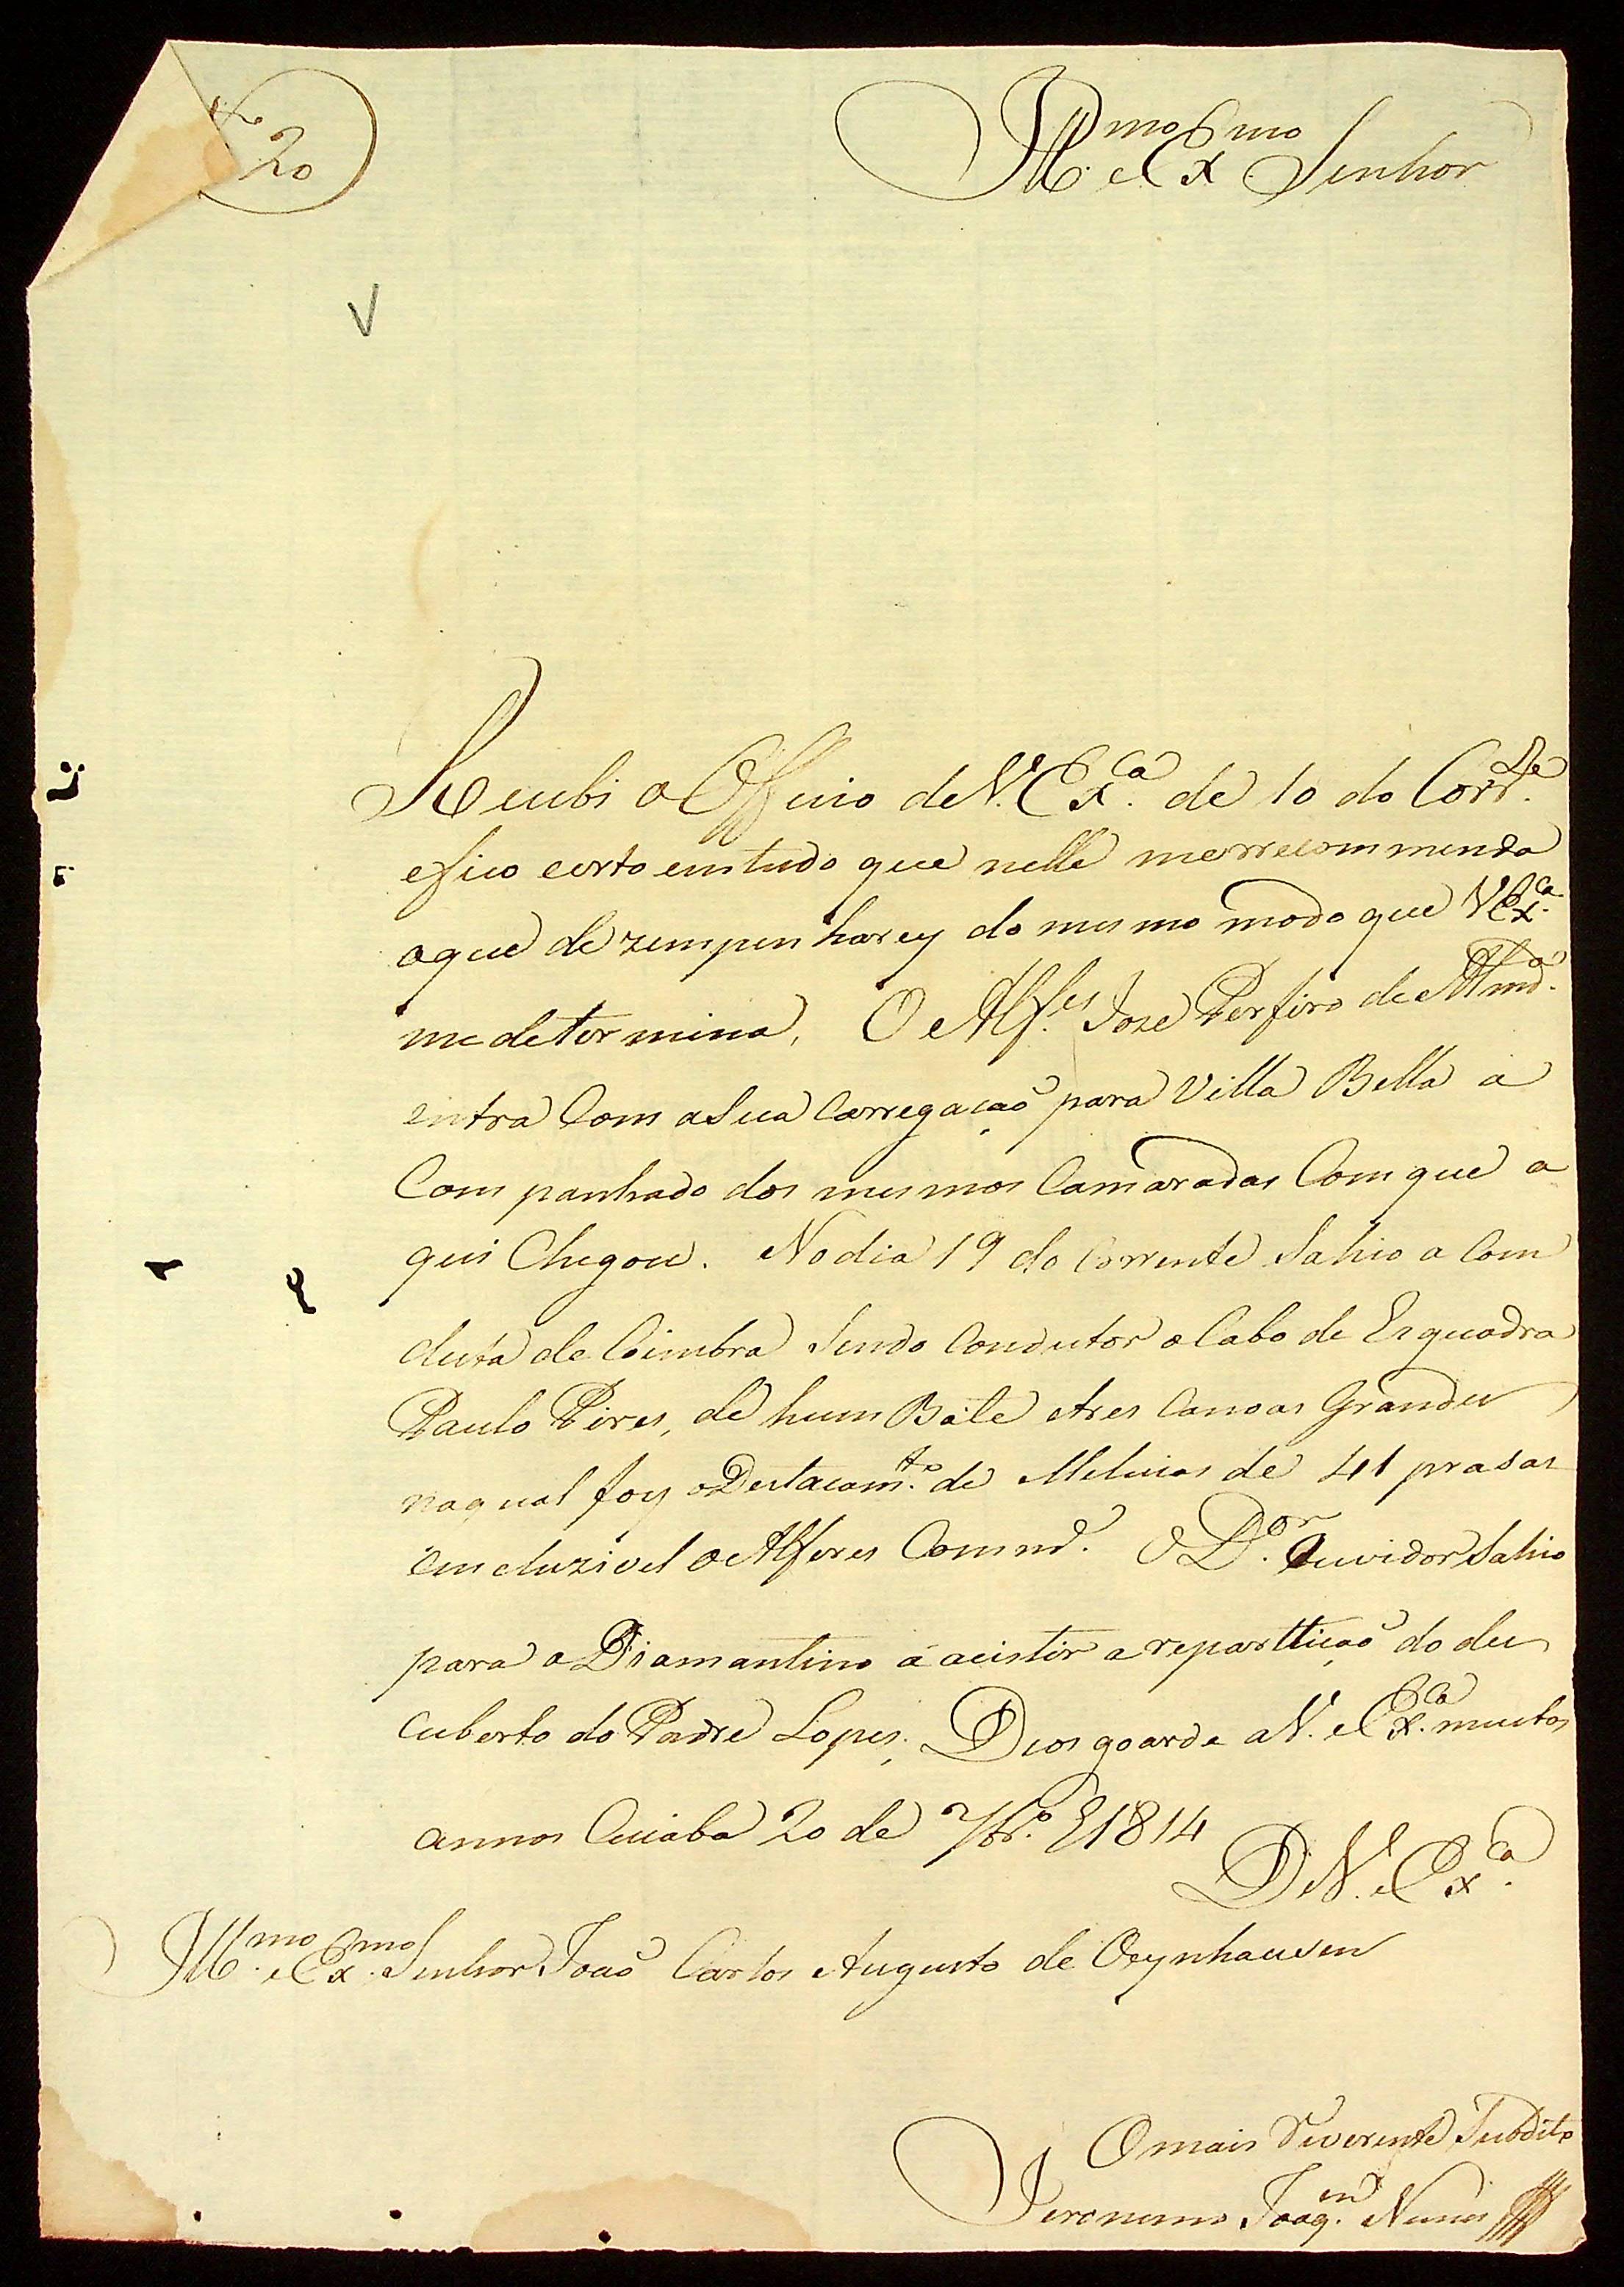 N.º 20
Ill.mo e Ex.mo Senhor
V
Recebi o Officio de V. Ex.ca de 10 do Corr.te
e fico certo em tudo que nelle me rrecommenda
a que dezempenharey do mesmo modo que V Ex.ca
me determina, O Alf.es Joze Perfiro de Almd.a
entra Com a Sua Carregação para Villa Bella a
Companhado dos mesmos Camaradas Com que a
qui Chegou. No dia 19 do Corrente Sahio a Com
duta de Coimbra Sendo Condutor o Cabo de Esquadra
Paulo Pires, de hum Bote e tres Canoas Grandes
na qual foy o Destacam.to de Melicias de 41 prasas
emcluzivel o Alferes Comnd.e O D.or Ouvidor Sahio
para o Diamantino á acistir a reparttição do des
cuberto do Padre Lopes; Deos goarde a V. Ex.ca muitos
annos Cuiaba 20 de 7br.o E 1814
D V. Ex.ca
Ill.mo e Ex.mo Senhor João Carlos Augusto de Oeynhausen
O mais Reverente Subdito
Jeronimo Joaq.m Nunes